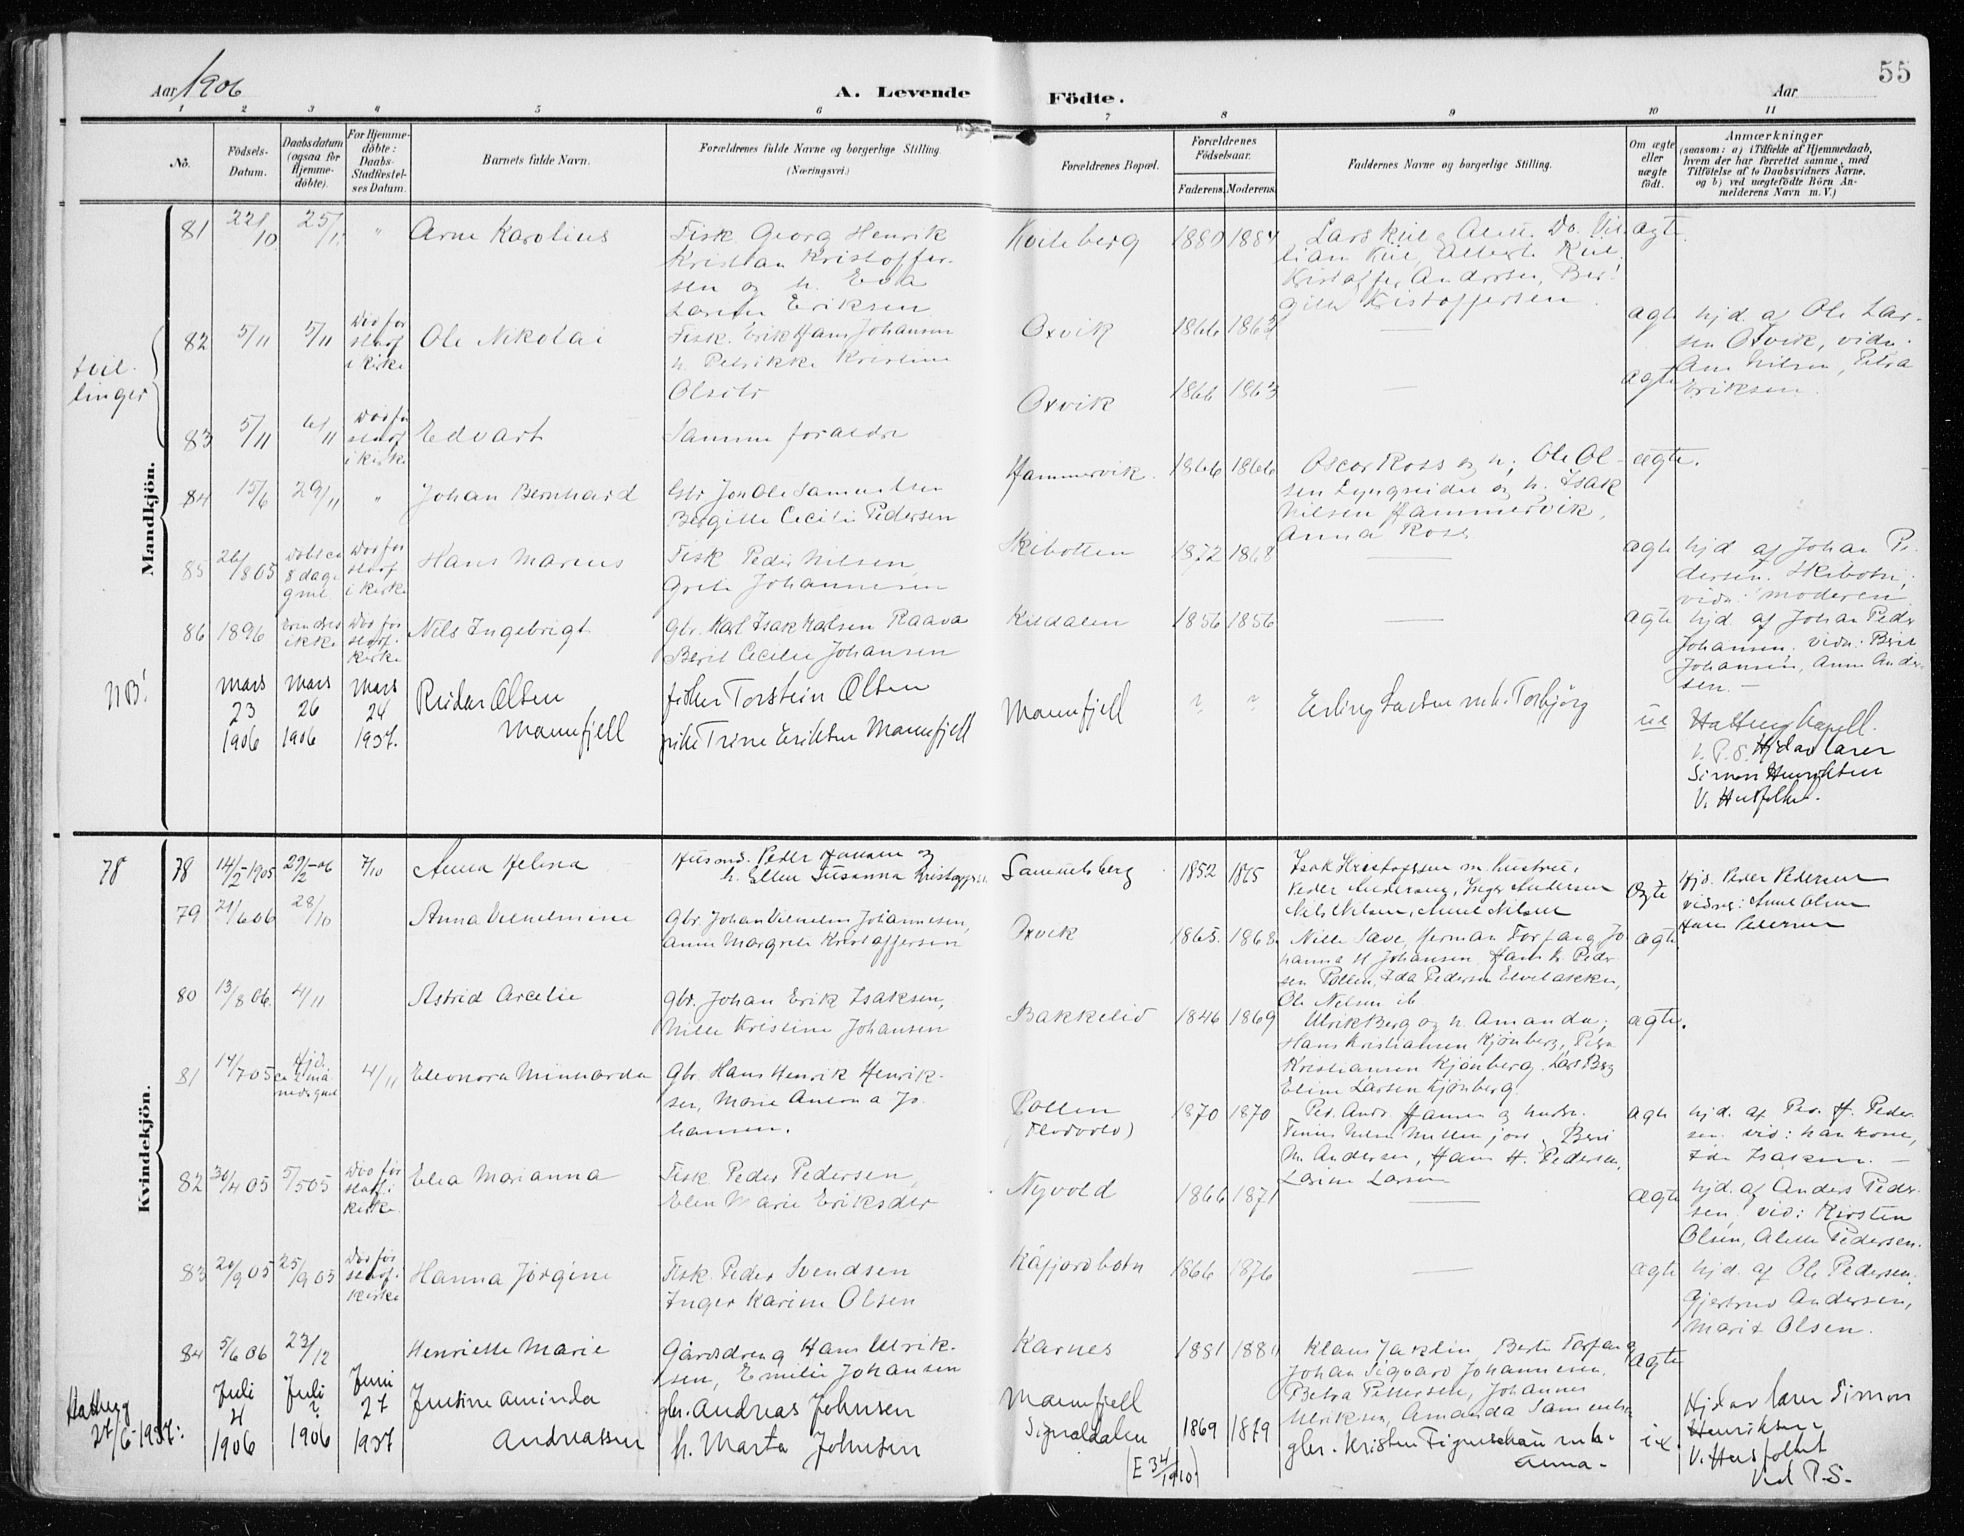 Aar 1906
A. Levende
Födte.
Aar
55
1 2 3 4 5 6 7 8 9 10 11
No.
Födsels-
Datum.
Daabsdatum
(ogsaa for
Hjemme-
döbte).
For Hjemme-
döbte:
Daabs-
Stadfæstel-
ses Datum.
Barnets fulde Navn.
Forældrenes fulde Navne og borgerlige Stilling.
(Næringsvei.)
Forældrenes Bopæl.
Forældrenes
Födselsaar.
Faderens. Moderens.
Faddernes Navne og borgerlige Stilling.
Om ægte
eller
uægte
födt.
Anmærkninger
(saasom: a) i Tilfælde af Hjemmedaab,
hvem der har forrettet samme, med
Tilföielse af to Daabsvidners Navne,
og b) ved uægtefödte Börn An-
melderens Navn m. V.)
Mandkjön.
81 22/10 25/11 " Arne Karolius
Fisk. Georg Henrik
Kristian Kristoffer-
sen og h. Eva
Eriksen
Kvileberg 1880 1884
Kristoffer Andersen, Ber-
gitte Kristoffersen.
ægte.
tvil-
linger
82 5/11 5/11 Død før
stadf
i kirke
Ole Nikolai
Fisk. Erik Hans Johansen
h. Petrikke Kristine
Olsdtr
Oxvik 1866 1863
—
ægte
hjd. af Ole Lar-
sen Oxvik, vidn.
Ane Nilsen, Petra
Eriksen.
83 5/11 6/11 Død før
stadf
i kirke
Edvart
Samme foraldre
Oxvik 1866 1863
—
ægte
84 15/6 29/11 " Johan Bernhard
Gbr. Jon Ole Samuelsen
Bergitte Cecilie Pedersen
Hammervik. 1866 1866
Oscar Ross og h; Ole Ol-
sen Lyngseidet og h. Isak
Nilsen Hammervik,
Anna Ross
ægte.
85 26/8 05 døbt ca
8 dage
gml
Død før
stadf
i kirke
Hans Marius
Fisk Peder Nilsen,
Grete Johannesen
Skibotten 1872 1868
—
ægte
hjd af Johan Pe-
dersen. Skibotn;
vidn: moderen
86 1896 erindres
ikke
Død før
stadf.
kirke
Nils Ingebrigt
Gbr. Karl Isak Karlsen Raava
Berit Cecilie Johansen
Kildalen 1856 1856
—
ægte
hjd. af Johan Peder
Johansen. vidn: Berit
Johansen, Anne Ander-
sen. —
NB!
mars
23
1906
mars
26
1906
mars
24
1937.
Reidar Olsen
Mannfjell
fisker Torstein Olsen
pike Trine Eriksen Mannfjell
Mannfjell ? ?
Torbjörg
ue
Hatteng kapell.
V. P.S. Hjd av lærer
Simon Henriksen
V. Husfolket.
Kvindekjön.
78 78 14/2-1905 29/2-06 7/10 Anna Helena
Husmd. Peder Hansen og
h. Ellen Susanna Kristoffersen
Samuelsberg 1852 1865
Isak Kristoffersen m. hustru,
Peder Andersen, Inger Andersen
Nils Nilsen, Anne Nilsen
Ægte
Hjd. Peder Pedersen
vidner: Anne Olsen
Hans Pedersen
79 21/6 06 28/10 Anna Vilhelmine
Gbr. Johan Vilhelm Johannesen,
Anne Margrete Kristoffersen
Oxvik 1865. 1868.
Nille Save, Herman Forfang, Jo
hanna H Johansen, Hans H. Peder-
sen Pollen, Ida Pedersen Elvebakken,
Ole Nelsen ib
ægte.
80 13/8 06 4/11 Astrid Arcelie
Gbr. Johan Erik Isaksen,
Nille Kristine Johansen
Bakkelid 1846 1869
Ulrik Berg og h. Amanda;
Hans Kristiansen Kjönberg, Petra
Kristiansen Kjönberg. Lars Berg
Eline Larsen Kjönberg
ægte.
81 14/7 05 Hjd.
ca 2 må-
neder gml
4/11 Eleonora Minharda
Gbr. Hans Henrik Henrik-
sen, Marie Antona Jo-
hansen.
Pollen 1870 1870
Ped. Andr. Hansen og hustr.
M. Andersen, Hans H. Pedersen,
Larine Larsen
ægte
hjd. af Ped. H. Peder-
sen. vid: han kone,
Ida Isaksen. —
82 30/4 05 5/5 05 Død før
stadf. i
kirke
Elea Marianna
Fisk Peder Pedersen,
Elen Marie Eriksdtr
Nyvold 1866 1871
—
ægte
hjd. af Anders Peder-
sen. vid: Kirsten
Olsen, Alette Pedersen.
83 20/9 05 25/9 05 Død før
stadf. i
kirke
Hanna Jörgine
Fisk. Peder Svendsen
Inger Karine Olsen
Kåfjordbotn 1866 1876
—
ægte
hjd. af Ole Pedersen.
Gjertrud Andersen,
Marit Olsen.
84 5/6 06 23/12 Henriette Marie
Gårdsdreng Hans Ulrik-
sen, Emilie Johansen
Karnes 1881 1881
Klaus Jæklin Berte Forfang
Johan Sigvard Johannesen.
Petra Pettersen, Johannes
Ulriksen, Amanda Samuelsen
ægte
Hatteng
27/6-1937:
Juli
4
1906
Juli
?
1906
Juni
27
1937
Justine Aminda
Andreassen
gbr. Andreas Johnsen
h. Marta Johnsen
Mannfjell
Signaldalen
(E 34/1910)
1869 1879
gbr. Kristen Figenschau m. h.
Anna.
Hjd av lærer Simon
Henriksen
V. Husfolket
Ved P.S.